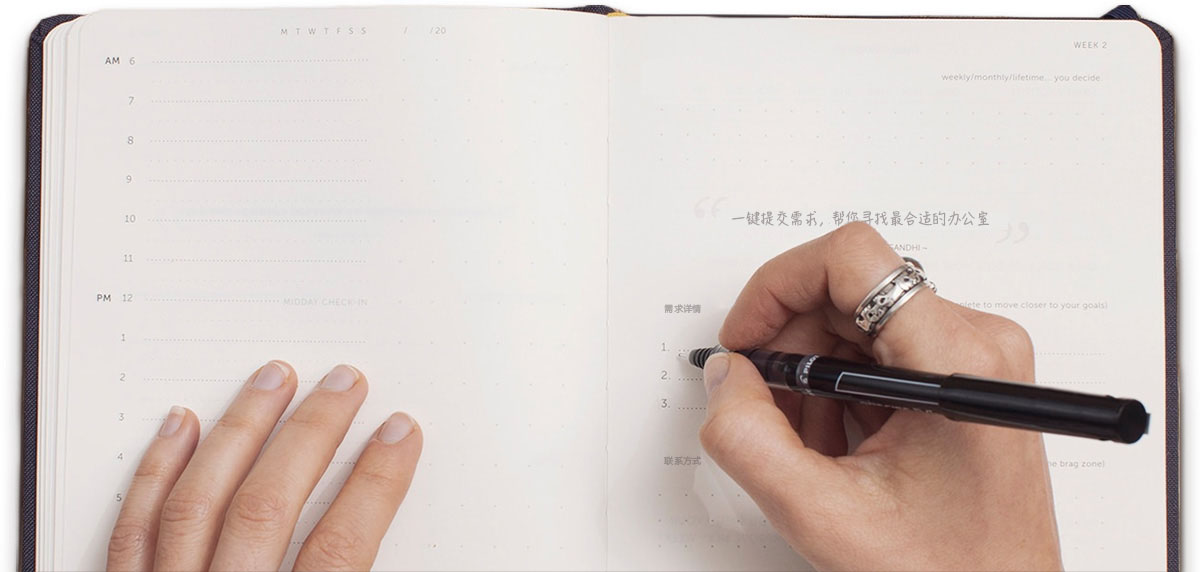 M T W T F S S / /20
AM 6
7
8
9
10
11
PM 12 MIDDAY CHECK-IN
1
2
3
4
5
WEEK 2
weekly/monthly/lifetime... you decide.
“一键提交需求，帮你寻找最合适的办公室”
GANDHI ~
需求详情 to move closer to your goals)
1.
2.
3.
PILOT
联系方式 brag zone)